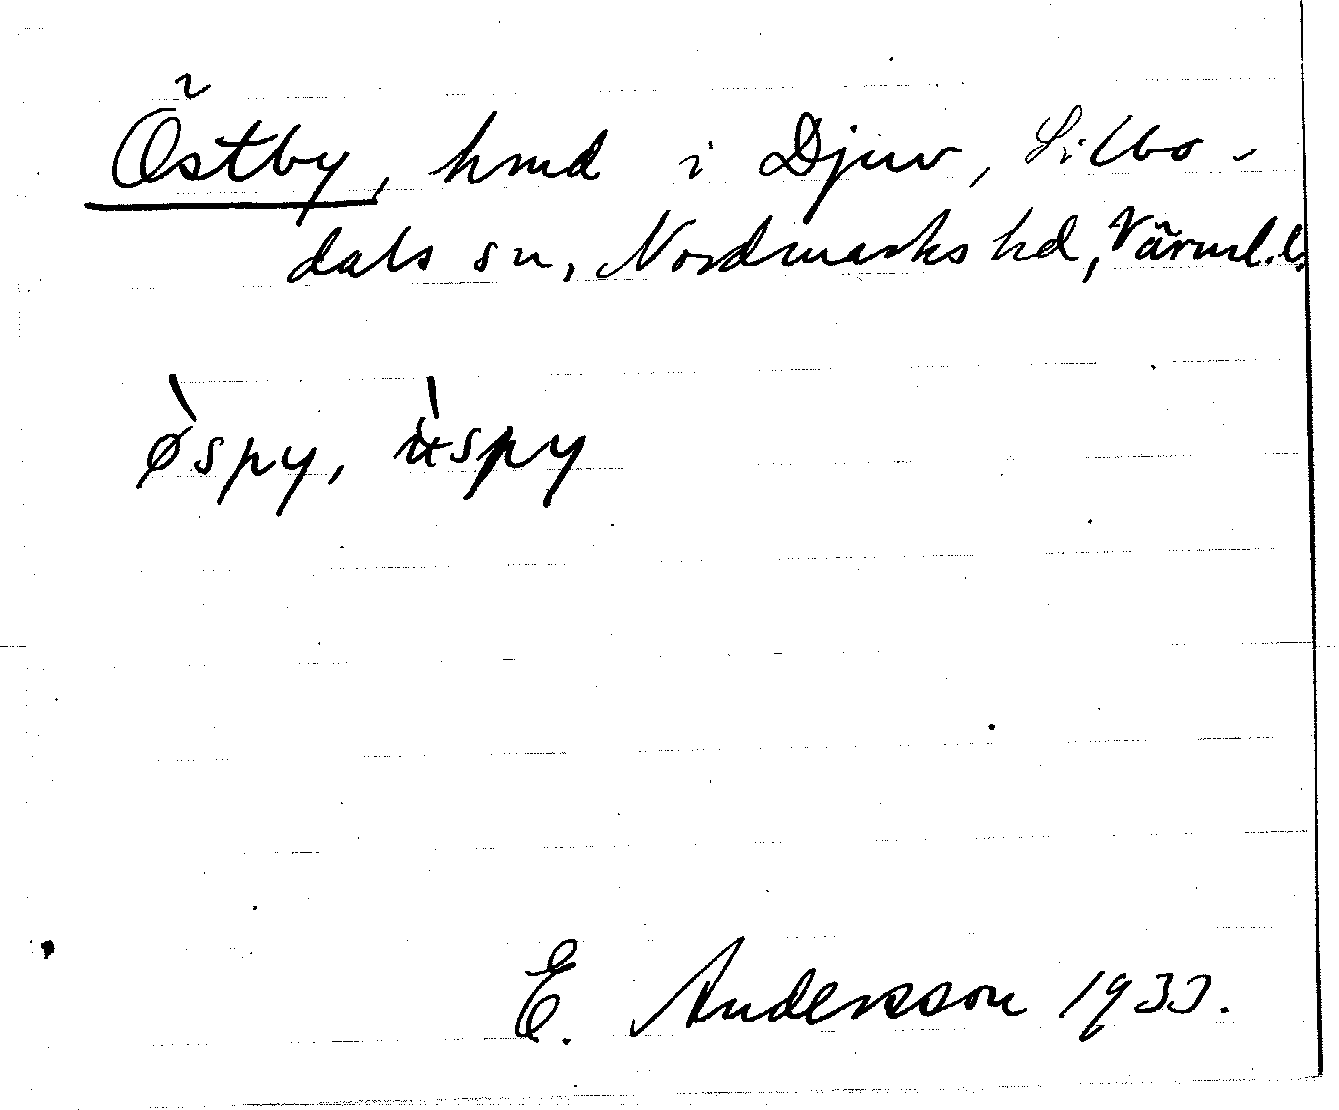 Östby, hmd i Djuv, Silbo-
dals sn, Nordmarks hd, Värml.l.
øspy, ʉspy
E. Andersson 1933.